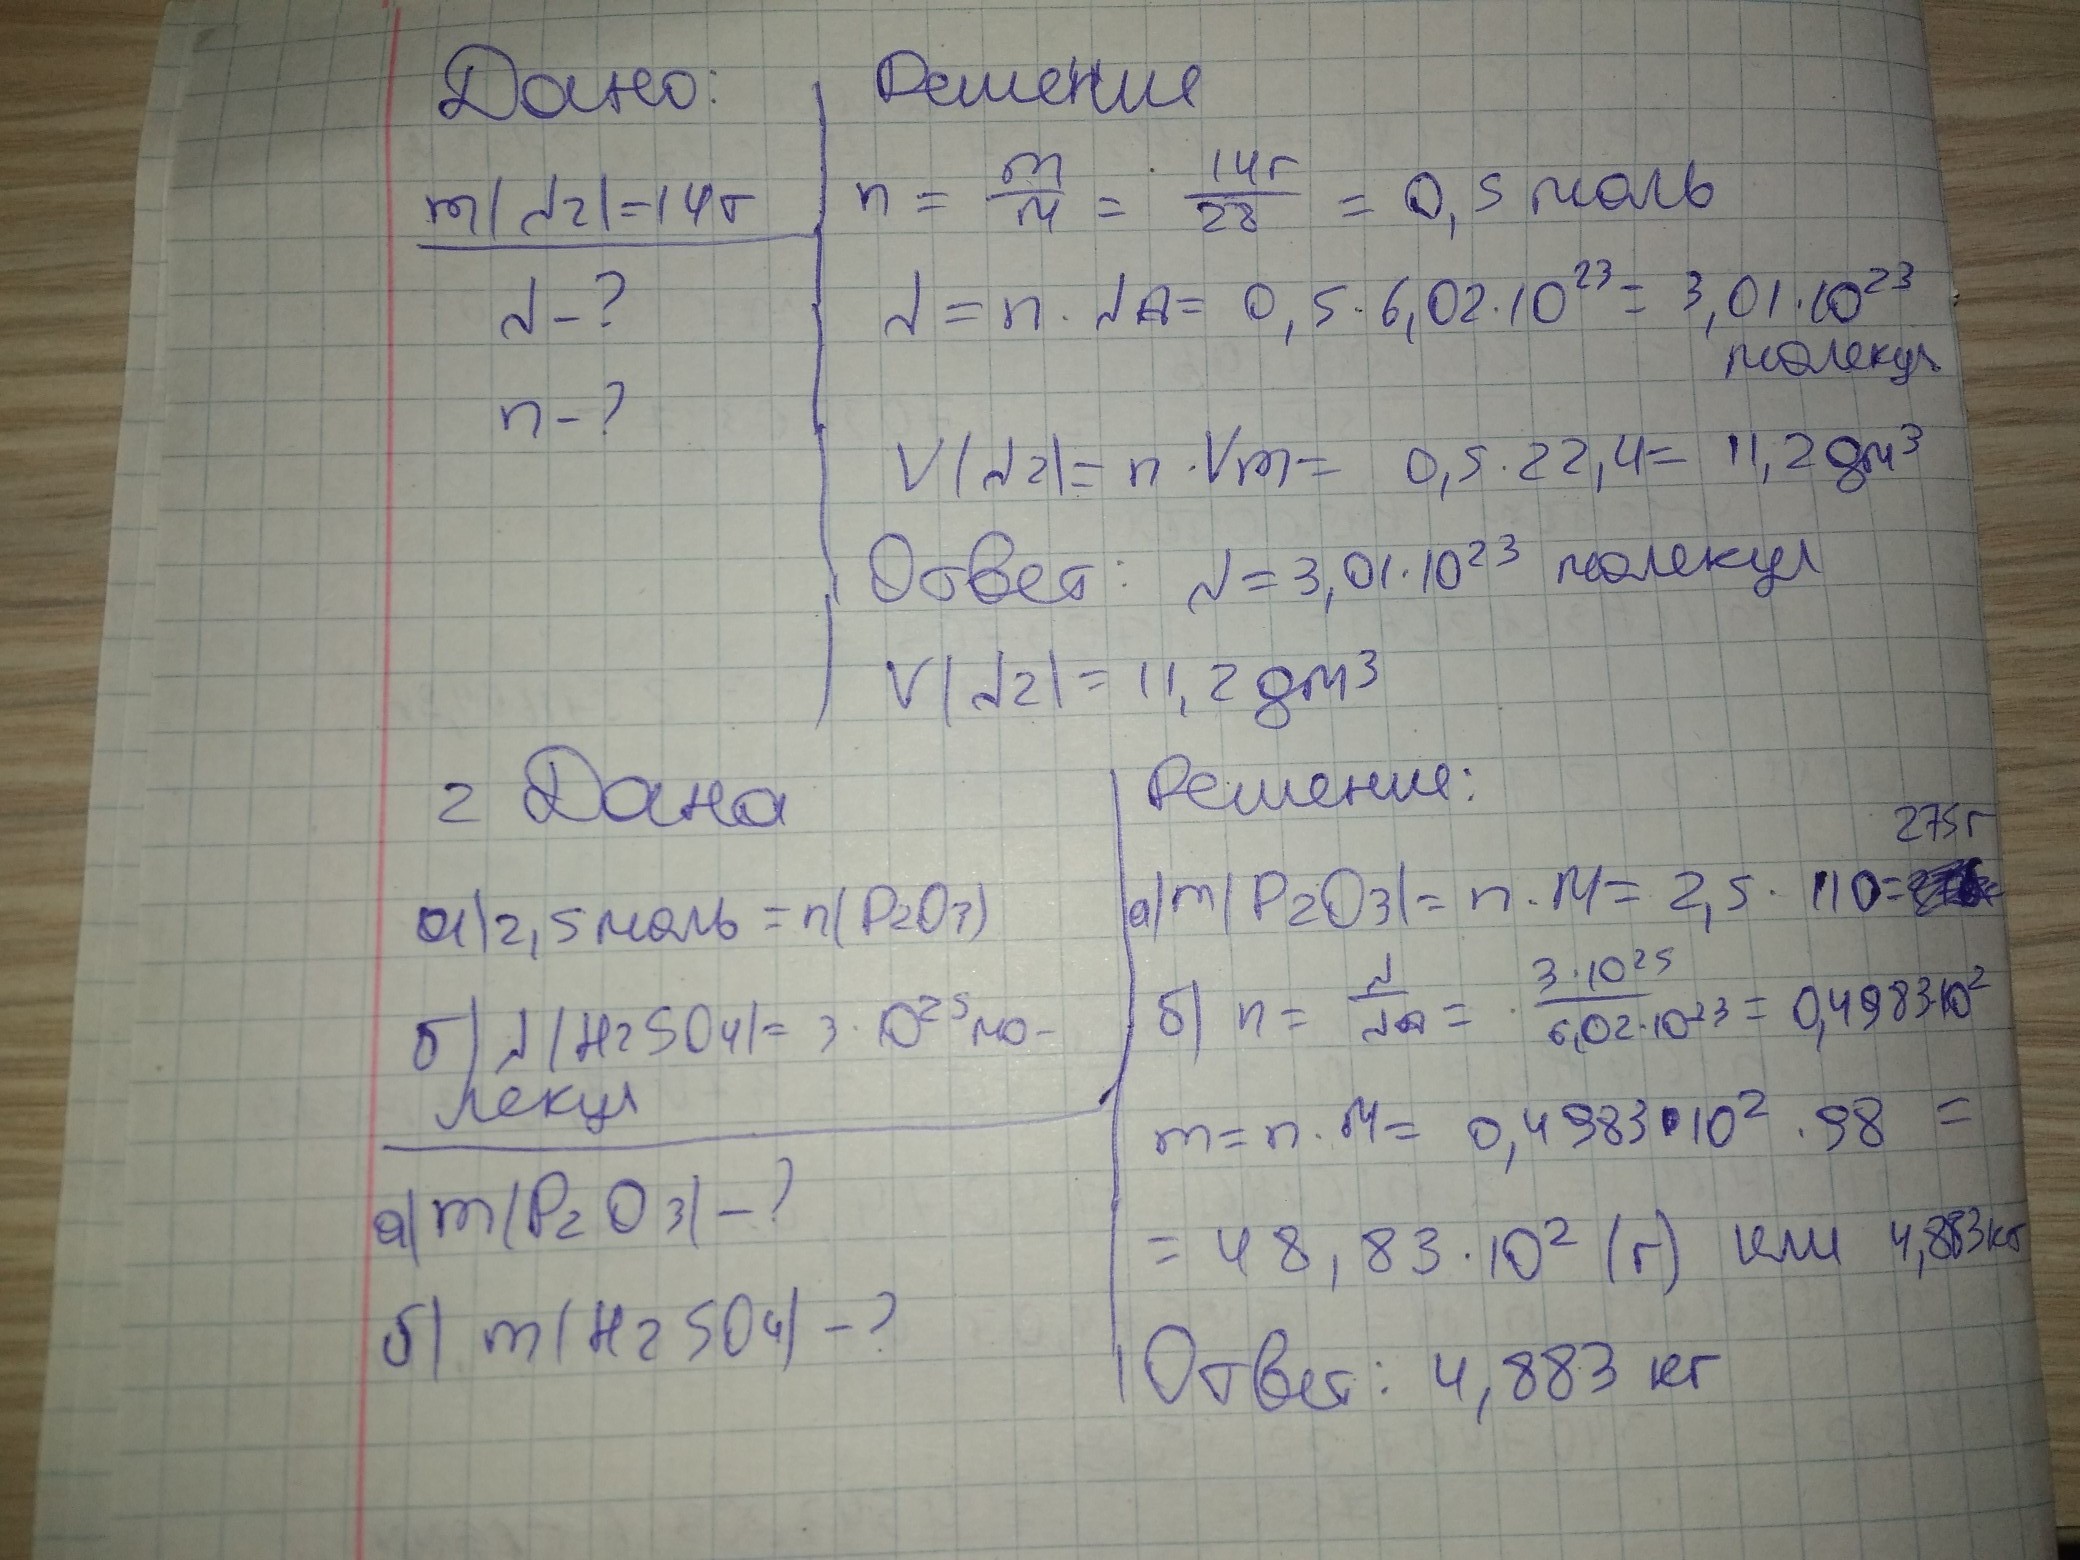 Дано:
m(N2)=14г
N-?
n-?
Решение
n = m/M = 14г/28 = 0,5 моль
N = n · NA = 0,5 · 6,02 · 10²³ = 3,01 · 10²³
молекул
V(N2) = n · Vm = 0,5 · 22,4 = 11,2 дм³
Ответ: N = 3,01 · 10²³ молекул
V(N2) = 11,2 дм³
2 Дана
а) 2,5 моль = n(P2O3)
б) N(H2SO4) = 3 · 10²⁵ мо-
лекул
а) m(P2O3) - ?
б) m(H2SO4) - ?
Решение:
а) m(P2O3) = n · M = 2,5 · 110 = 275г
б) n = N/NA = 3·10²⁵/6,02·10²³ = 0,4983·10²
m = n · M = 0,4983 · 10² · 98 =
= 48,83 · 10² (г) или 4,883кг
Ответ: 4,883 кг